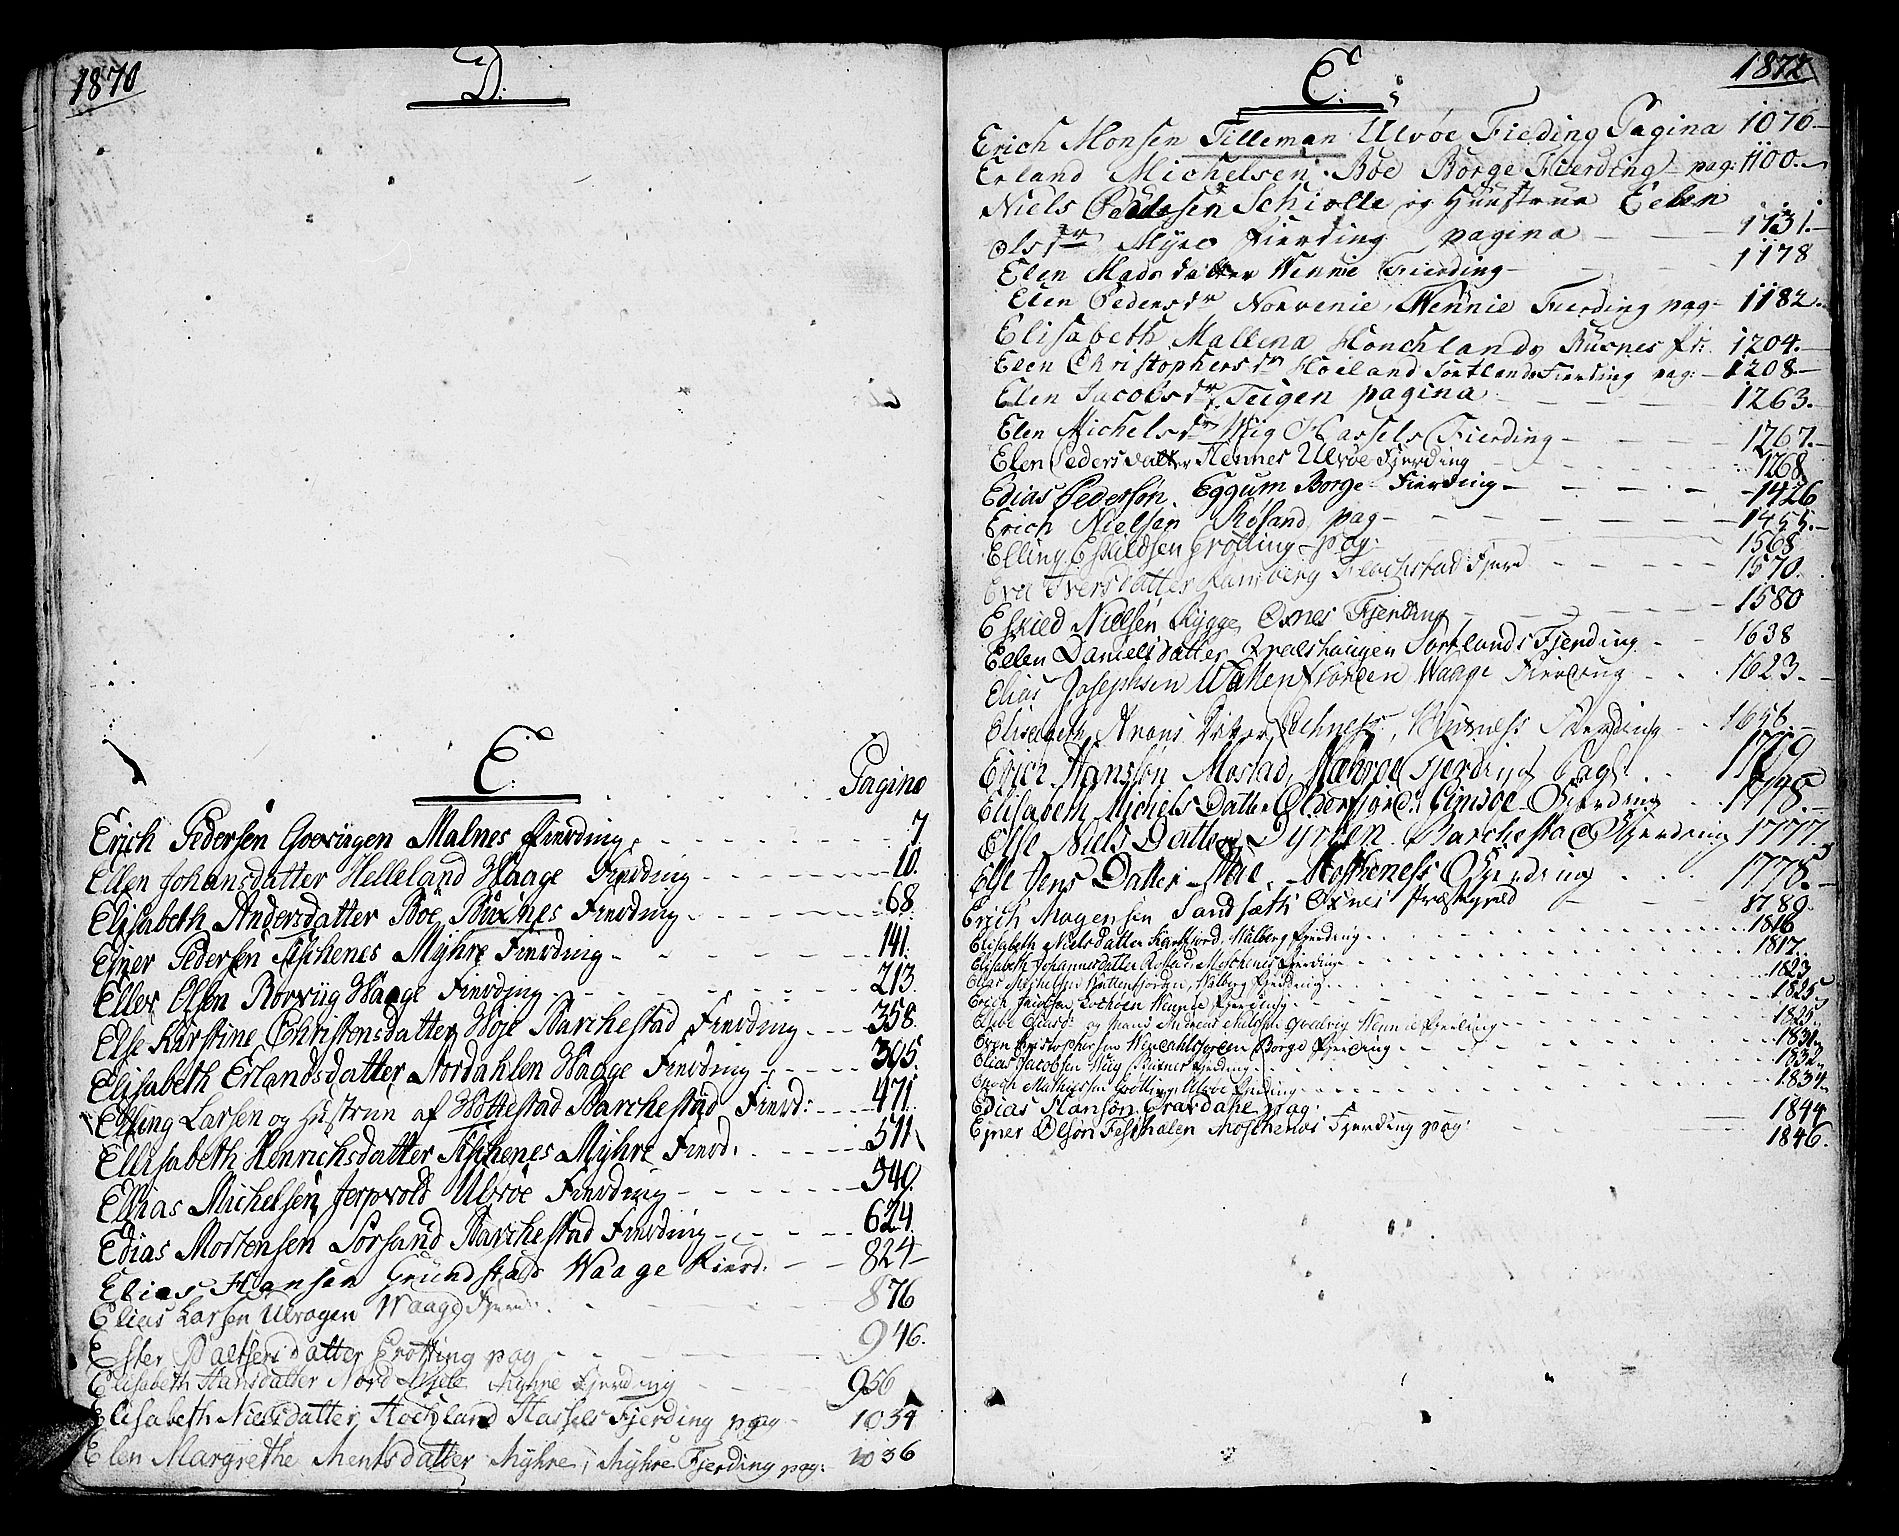 1870
D:
E:
Pagina
Erich Pedersen Govsigen Malnes Fierding 7
Ellen Johansdatter Helleland Waage Fierding 10.
Elisabeth Andersdatter Böe, Büxnes Fierding 68
Ejner Pedersen Alschenes Myhre Fierding 141.
Eller Olsen Rorviig Waage Fierding 213.
Else Kirstine Christensdatter Høje Barchestad Fierding 358.
Elisabeth Erlandsdatter Nordahlen Waage Fierding 395.
Elling Larsen og Hustrun af Hottestad Barchestad Fierd: 471.
Ellisabeth Henrichsdatter Alschenes Myhre Fierd: 511
Ellias Michelsen Jerpvold Ulvöe Fierding 549.
Edias Mortensen Sorsand Barchestad Fierding 624.
Elias Hansen Grundstad Waage Fierd: 824
Elias Larsen Ulvogen Waage Fjerd: 876
Ester Baltsersdatter Grotting pag 946.
Elisabeth Hansdatter Nord Myhre Fjerding 956
Elisabeth Nielsdatter, Hochland Hassels Fjerding pag 1034
Elen Margrethe Mentsdatter Myhre, Myhre Fjerding pag: 1036
1872
E:
Erich Monsen Tilleman Ulvöe Fieding Pagina 1076
Erland Michelsen Böe Borge Fierding pag: 1100.
Niels Pedersen Schiolle og Huustrue Eelen
Olsdr Myre Fierding pagina 1131.
Elen Madsdatter Wennie Fierding 1178
Elen Pedersdr Norvenie, Wennie Fierding pag 1182.
Elisabeth Mallena Honchlands Büxnes fr: 1204.
Elen Christophersdr Höeland Sortlands Fierding pag: 1208
Elen Jacobsdr Teigen pagina 1263.
Elen Michelsdr Wiig Hassels Fierding 1267.
Elen Pedersdatter Hennes Ulvöe Fjerding 1268
Edias Pedersøn Eggum Borge Fierding 1426
Erich Nielsen Røsand pag 1455.
Elling Eskildsen Grötting pag: 1568
Eva Iversdatter Ramberg Flachstad Fjerd 1570.
Eskied Nielsen Rygge, Oxnes Fjerding 1580
Ellen Danielsdatter Fredshaugen Sortlands Fjerding 1638
Elias Josephsen Watten Waage Fierding 1623.
Elisabeth Büxness Fierding 1658.
Erich Hansson Mostad, Wæhröe Fjerding Pag:
Elisabeth Michels Datter Gimsöe Fierding 1748.
Else Niels Datter Dyreen Barchestad Fjerding 1777.
Else Jens Datter Moschenes Fjerding 1778.
Erich Magensen Sandsæth Oxnes Præstegield 1780.
Elisabeth Nielsdatter Hartfiord, Walberg Fjerding 1816
Elisabeth Johannesdatter Rostad Moschenes Fjerding 1817.
Elias Michelsen Walberg Fjerding 1823
Erich Jacobsen Wennie Fjerding 1825
Elsebe Eliasd: og hans Andreas Nielsen Wennie Fjerding 1825
Even Christophersen Borge Fjerding 1831
Elias Jacobsen Wiig Büxnes Fjerding 1832
Enoch Mathiesen Grotting, Ulvöe Fjerding 1834
Edias Hansøn pag: 1844
Ejner Olsøn Moschenes Fjerding pag: 1846.